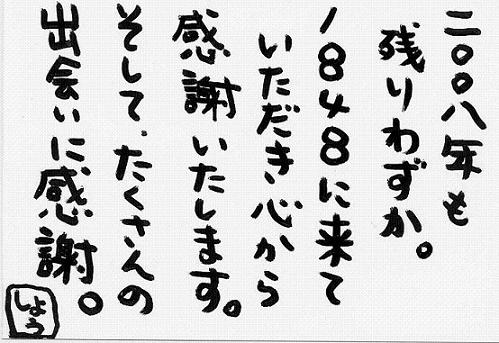 二〇〇八年も
残りわずか。
1848に来て
いただき心から
感謝いたします。
そして、たくさんの
出会いに感謝。
しょう